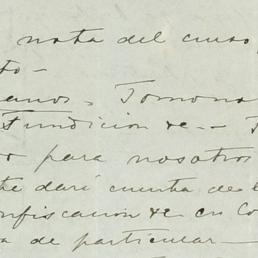 nota del curso
to-
anos. Tomona
Fundicion &e.-
o para nosotros
te dari cuenta de l
nfiscacion &e en Co
a de particular-